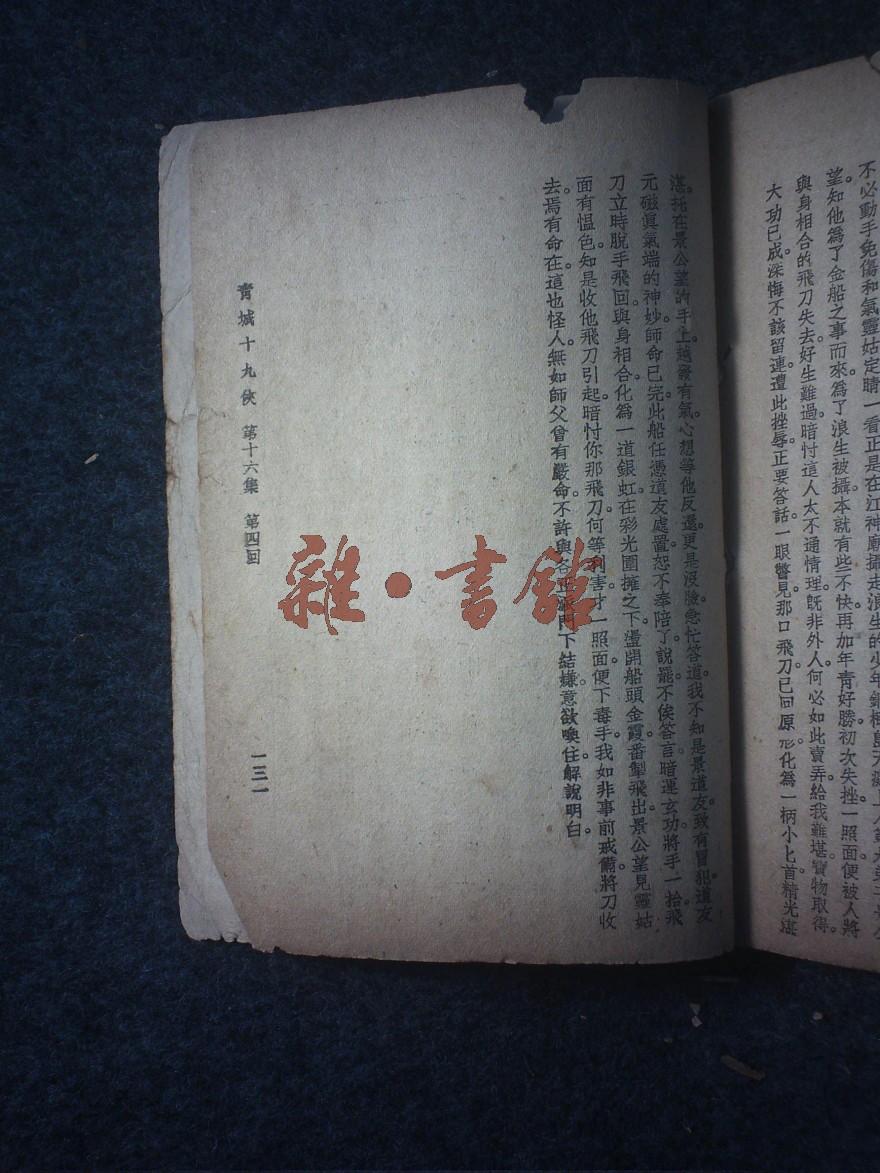 不必動手免傷和氣靈姑定睛一看正是在江神廟攝走浪生的少年
望知他爲了金船之事而來爲了浪生被攝本就有些不快再加年青好勝初次失挫一照面便被人將
與身相合的飛刀失去好生難過暗忖這人太不通情理旣非外人何必如此賣弄給我難堪寶物取得。
大功已成深悔不該留連遭此挫辱正要答話一眼瞥見那口飛刀已回原形化爲一柄小匕首精光湛
湛。托在景公望的手上。越發有氣心想等他反還更是沒臉急忙答道。我不知是景道友致有冒犯。道友
元磁眞氣端的神妙師命已完此船任憑道友處置恕不奉陪了說罷不俟答言暗運玄功將手一抬飛
刀立時脫手飛回與身相合化爲一道銀虹在彩光圍擁之下盪開船頭金霞番掣飛出景公望見靈姑
面有慍色知是收他飛刀引起暗忖你那飛刀何等利害才一照面便下毒手我如非事前戒備將刀收
去。焉有命在。這也怪人。無如師父曾有嚴命。不許與各正派門下結嫌意欲喚住解說明白。
靑城十九俠 第十六集 第四回
一三一
雜·書館